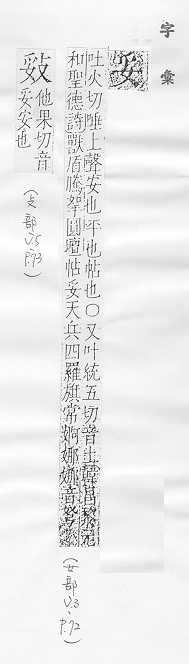 字彙
妥
吐火切唾上聲安也平也帖也○又叶統五切音土韓昌黎元
和聖德詩獸盾騰拏圓壇帖妥天兵四羅旗常婀娜娜音弩
(女部 V.3 P.72)
㪑 他果切音
妥安也
(攴部 V.5 P.73)